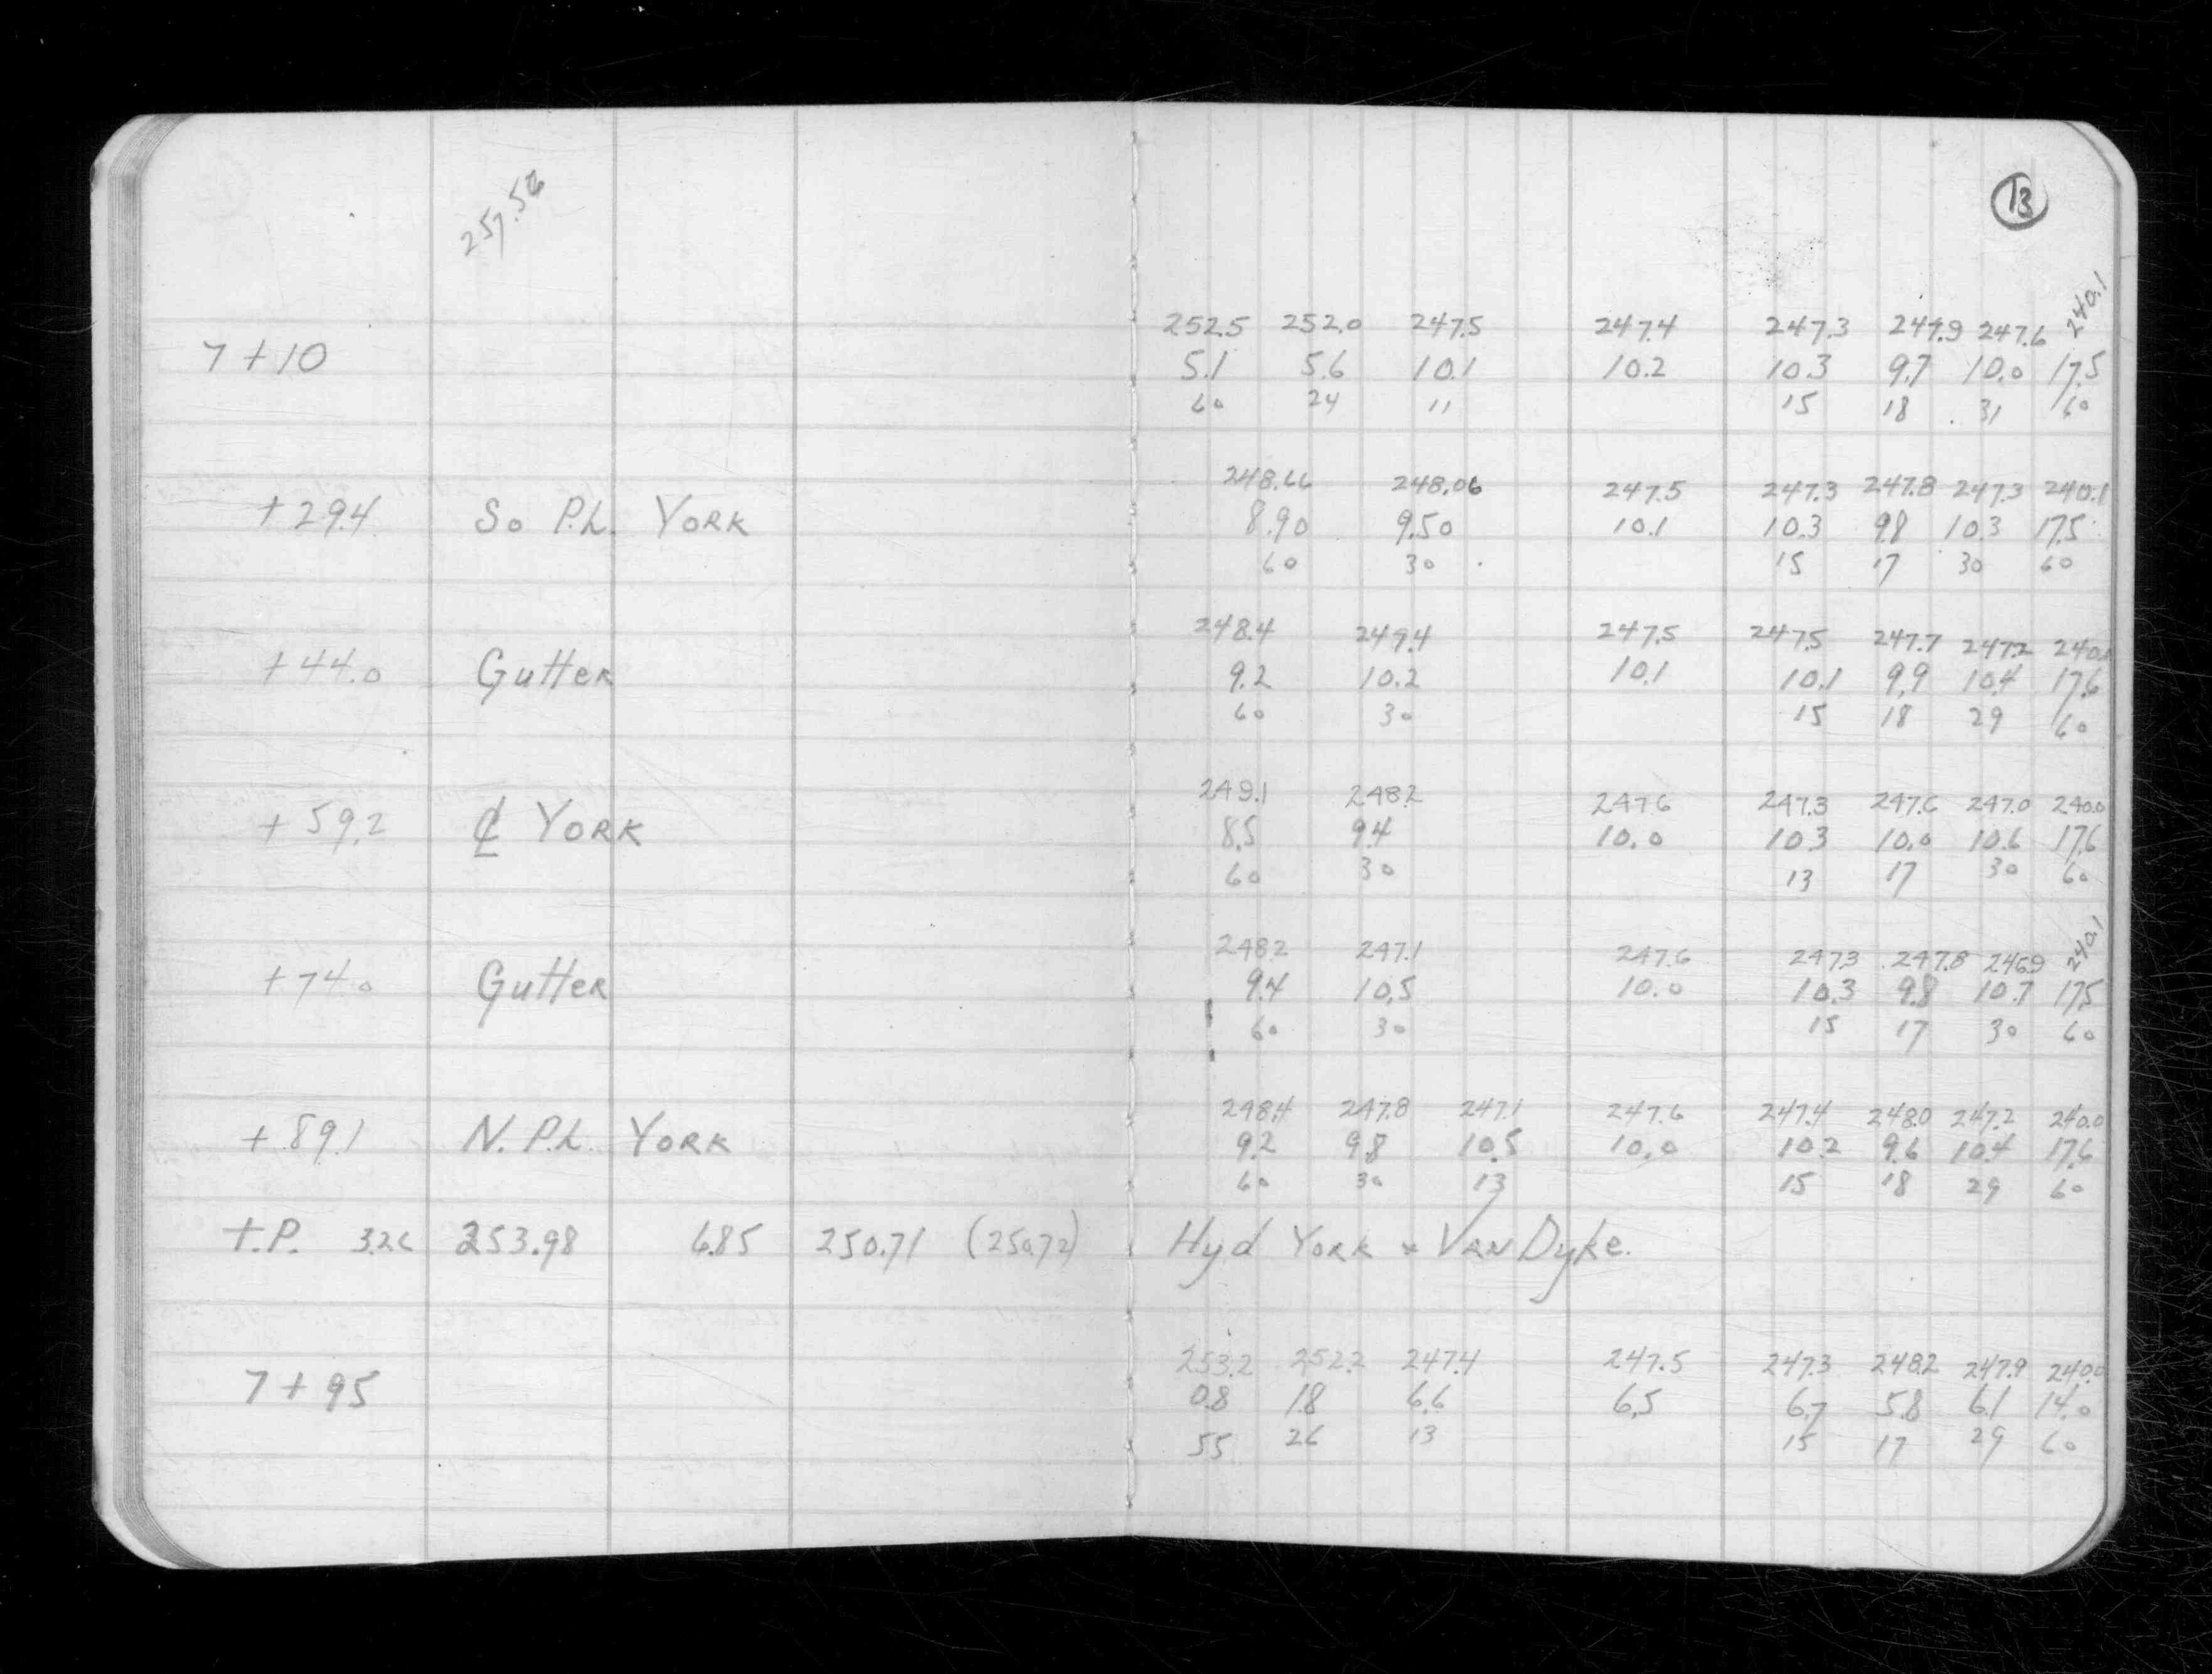 257.56
13
252.5 252.0 247.5 247.4 247.3 247.9 247.6 240.1
7+10 5.1 5.6 10.1 10.2 10.3 9.7 10.0 17.5
60 24 11 15 18 31 60
248.66 248.06 247.5 247.3 247.8 247.3 240.1
+29.4 So P.L. YORK 8.90 9.50 10.1 10.3 9.8 10.3 17.5
60 30 15 17 30 60
248.4 249.4 247.5 247.5 247.7 247.2
+44.0 Gutter 9.2 10.2 10.1 10.1 9.9 10.4 17.6
60 30 15 18 29 60
249.1 248.2 247.6 247.3 247.6 247.0 240.0
+59.2 ℄ YORK 8.5 9.4 10.0 10.3 10.0 10.6 17.6
60 30 13 17 30 60
248.2 247.1 247.6 247.3 247.8 246.9 240.1
+74.0 Gutter 9.4 10.5 10.0 10.3 9.8 10.7 17.5
60 30 15 17 30 60
248.4 247.8 247.1 247.6 247.4 248.0 247.2 240.0
+89.1 N. P.L. YORK 9.2 9.8 10.5 10.0 10.2 9.6 10.4 17.6
60 30 13 15 18 29 60
T.P. 3.26 253.98 6.85 250.71 (250.72) Hyd YORK & VAN Dyke.
253.2 252.2 247.4 247.5 247.3 248.2 247.9 240.0
7+95 0.8 1.8 6.6 6.5 6.7 5.8 6.1 14.0
55 26 13 15 17 29 60